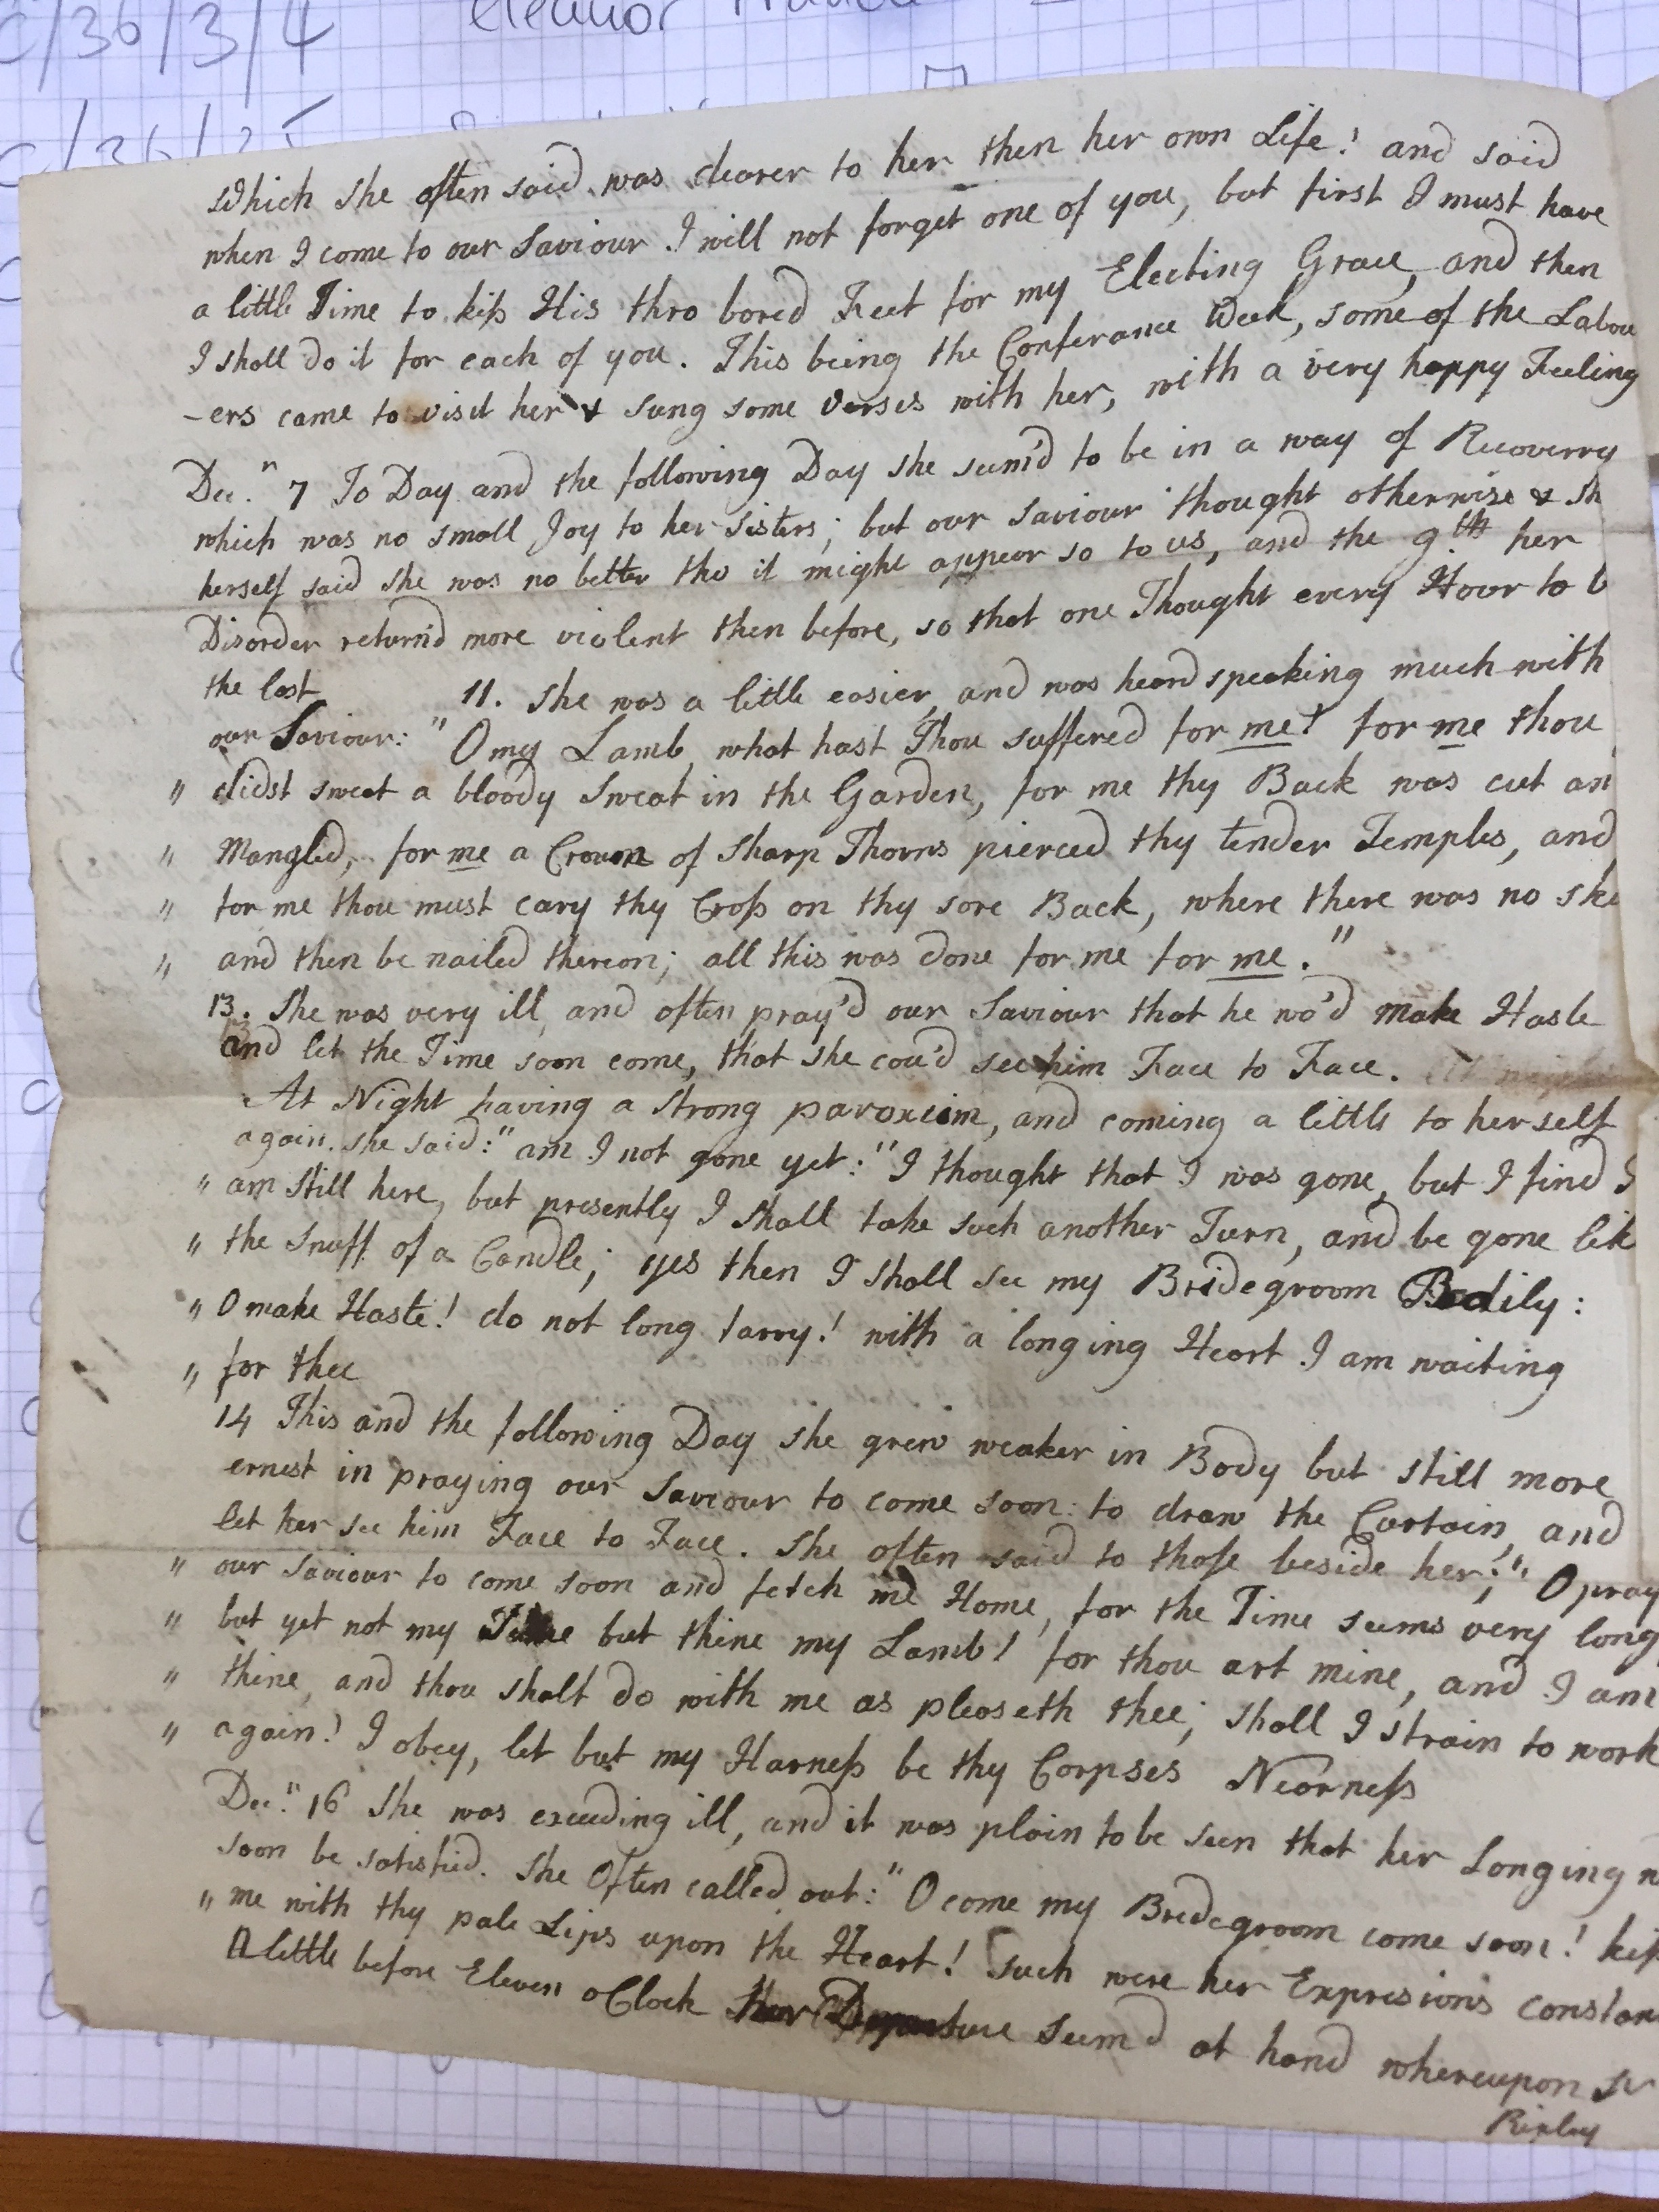 C/36/3/4 Eleanor
C/36/35
Which she often said was dearer to her then her own Life! and said
when I come to our Saviour I will not forget one of you, but first I must have
a little Time to kiss His thro bored Feet for my Electing Grace, and then
I shall do it for each of you. This being the Conferance Week, some of the Labou
-ers came to visit her & sung some Verses with her, with a very happy Feeling
Decr. 7 To Day and the following Day she seem'd to be in a way of Recoverry
which was no small Joy to her Sisters; but our Saviour thought otherwise & Sh
herself said she was no better tho it might appear so to us, and the 9th her
Disorder return'd more violent then before, so that one Thought every Hour to b
the last 11. She was a little easier, and was heard speaking much with
our Saviour: " O my Lamb, what hast Thou suffered for me! for me thou
" didst sweat a bloody Sweat in the Garden, for me thy Back was cut an
" Mangled, for me a Crown of Sharp Thorns pierced thy tender Temples, and
" for me thou must cary thy Cross on thy sore Back, where there was no ski
" and then be nailed thereon; all this was done for me for me."
13. She was very ill, and often pray'd our Saviour that he wo'd make Haste
and let the Time soon come, that she cou'd see him Face to Face.
At Night having a strong paroxcism, and coming a little to herself
again. she said: " am I not gone yet: " I thought that I was gone, but I find I
" am still here, but presently I shall take such another Turn, and be gone lik
" the Snuff of a Candle; yes then I shall see my Bridegroom Bodily:
" O make Haste! do not long tarry! with a longing Heart I am waiting
" for thee
14 This and the following Day she grew weaker in Body but still more
ernest in praying our Saviour to come soon: to draw the Curtain, and
let her see him Face to Face. She often said to those beside her; " O pray
" our Saviour to come soon and fetch me Home, for the Time seems very long
" but yet not my Time but thine my Lamb! for thou art mine, and I am
" thine, and thou shalt do with me as pleaseth thee; shall I strain to work
" again! I obey, let but my Harness be thy Corpses Nearness
Decr. 16 She was exceeding ill, and it was plain to be seen that her Longing w
soon be satisfied. She Often called out: " O come my Bridegroom come soon! kiss
" me with thy pale Lips upon the Heart! Such were her Expresions constan
A little before Eleven oClock her Departure seem'd at hand whereupon Sr
Rixley